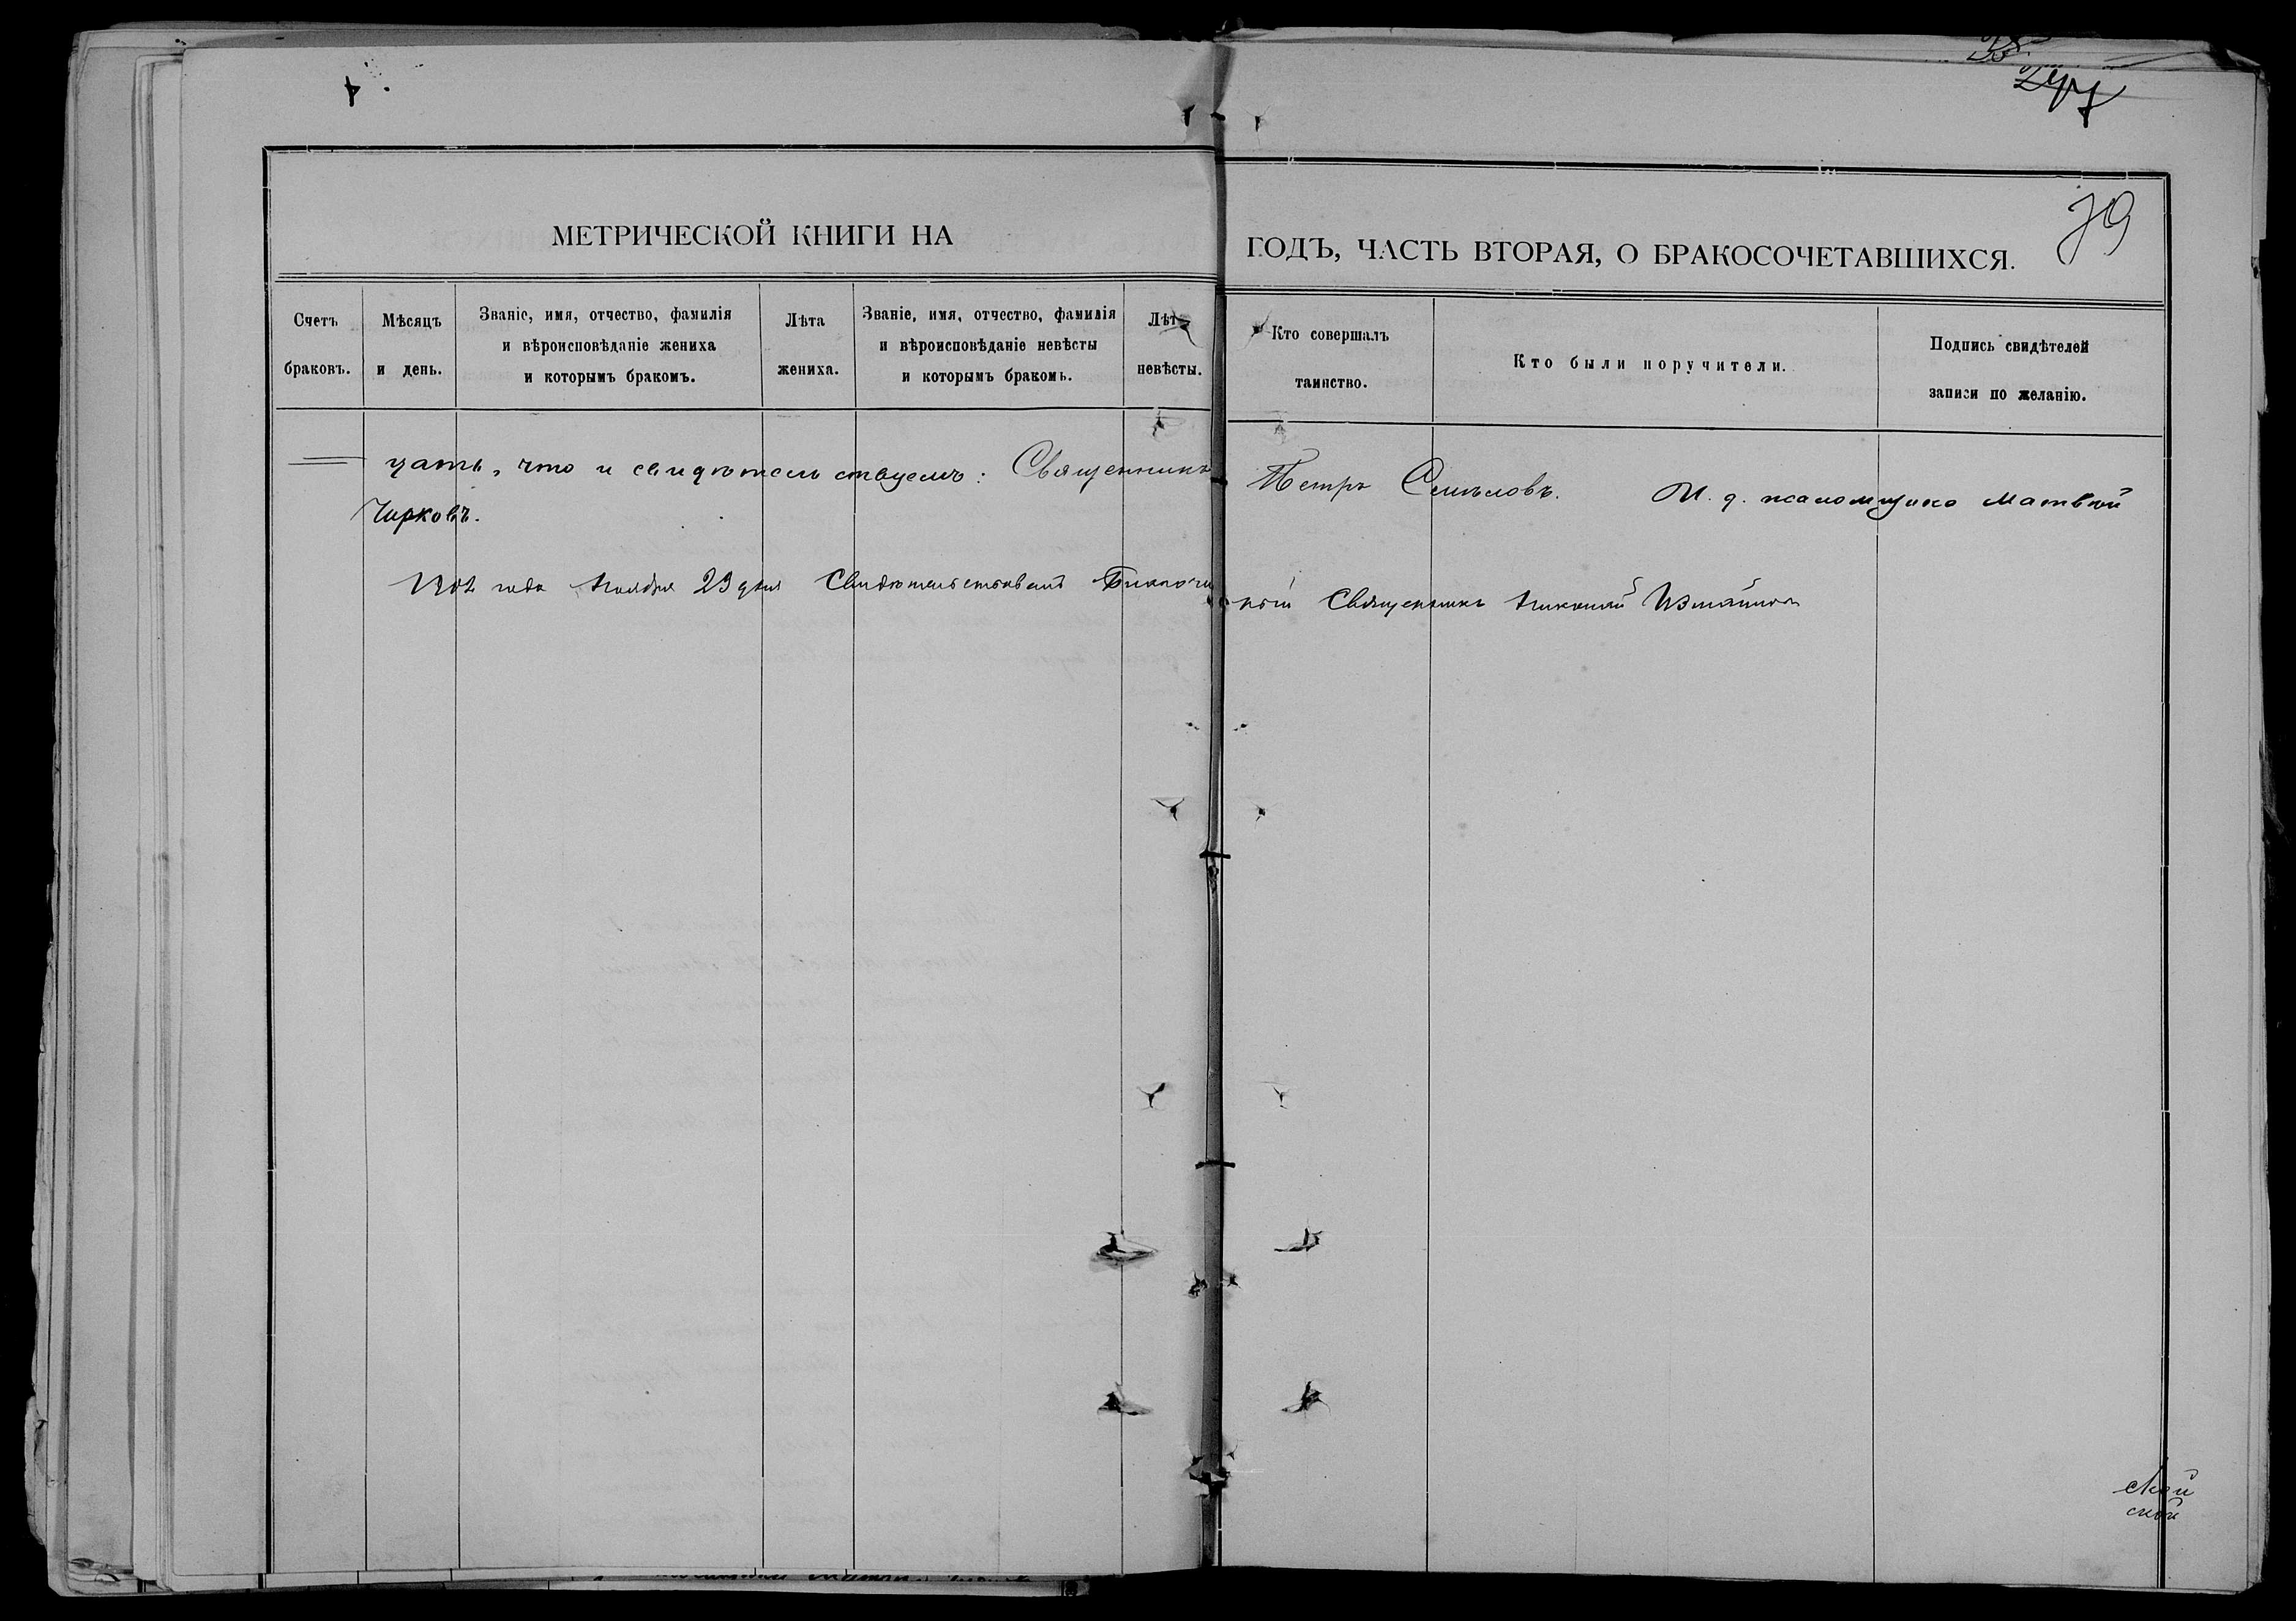 79
МЕТРИЧЕСКОЙ КНИГИ НА ГОДЪ, ЧАСТЬ ВТОРАЯ, О БРАКОСОЧЕТАВШИХСЯ.
Счетъ браковъ.
Мѣсяцъ и день.
Званіе, имя, отчество, фамилія
и вѣроисповѣданіе жениха
и которымъ бракомъ.
Лѣта жениха.
Званіе, имя, отчество, фамилія
и вѣроисповѣданіе невѣсты
и которымъ бракомъ.
Лѣта невѣсты.
Кто совершалъ таинство.
Кто были поручители.
Подпись свидѣтелей
записи по желанію.
цать, что и свидѣтельствуемъ: Священникъ Петръ И. д. псаломщика Матвѣй
Чирковъ.
1902 года Ноября 29 дня Свидѣтельствовалъ Благочинный Священникъ Николай
ской
ской